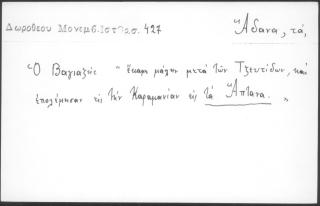 Δωροθεου Μονεμβ.Ιστ. σ. 427
Ἄδανα, τά,
Ὁ Βαγιαζὴς " ἔκαμε μάχην μετὰ τῶν Τζεντίδων, καὶ
ἐπολέμησαν εἰς τὴν Καραμανίαν εἰς τὰ Ἄπτανα. "